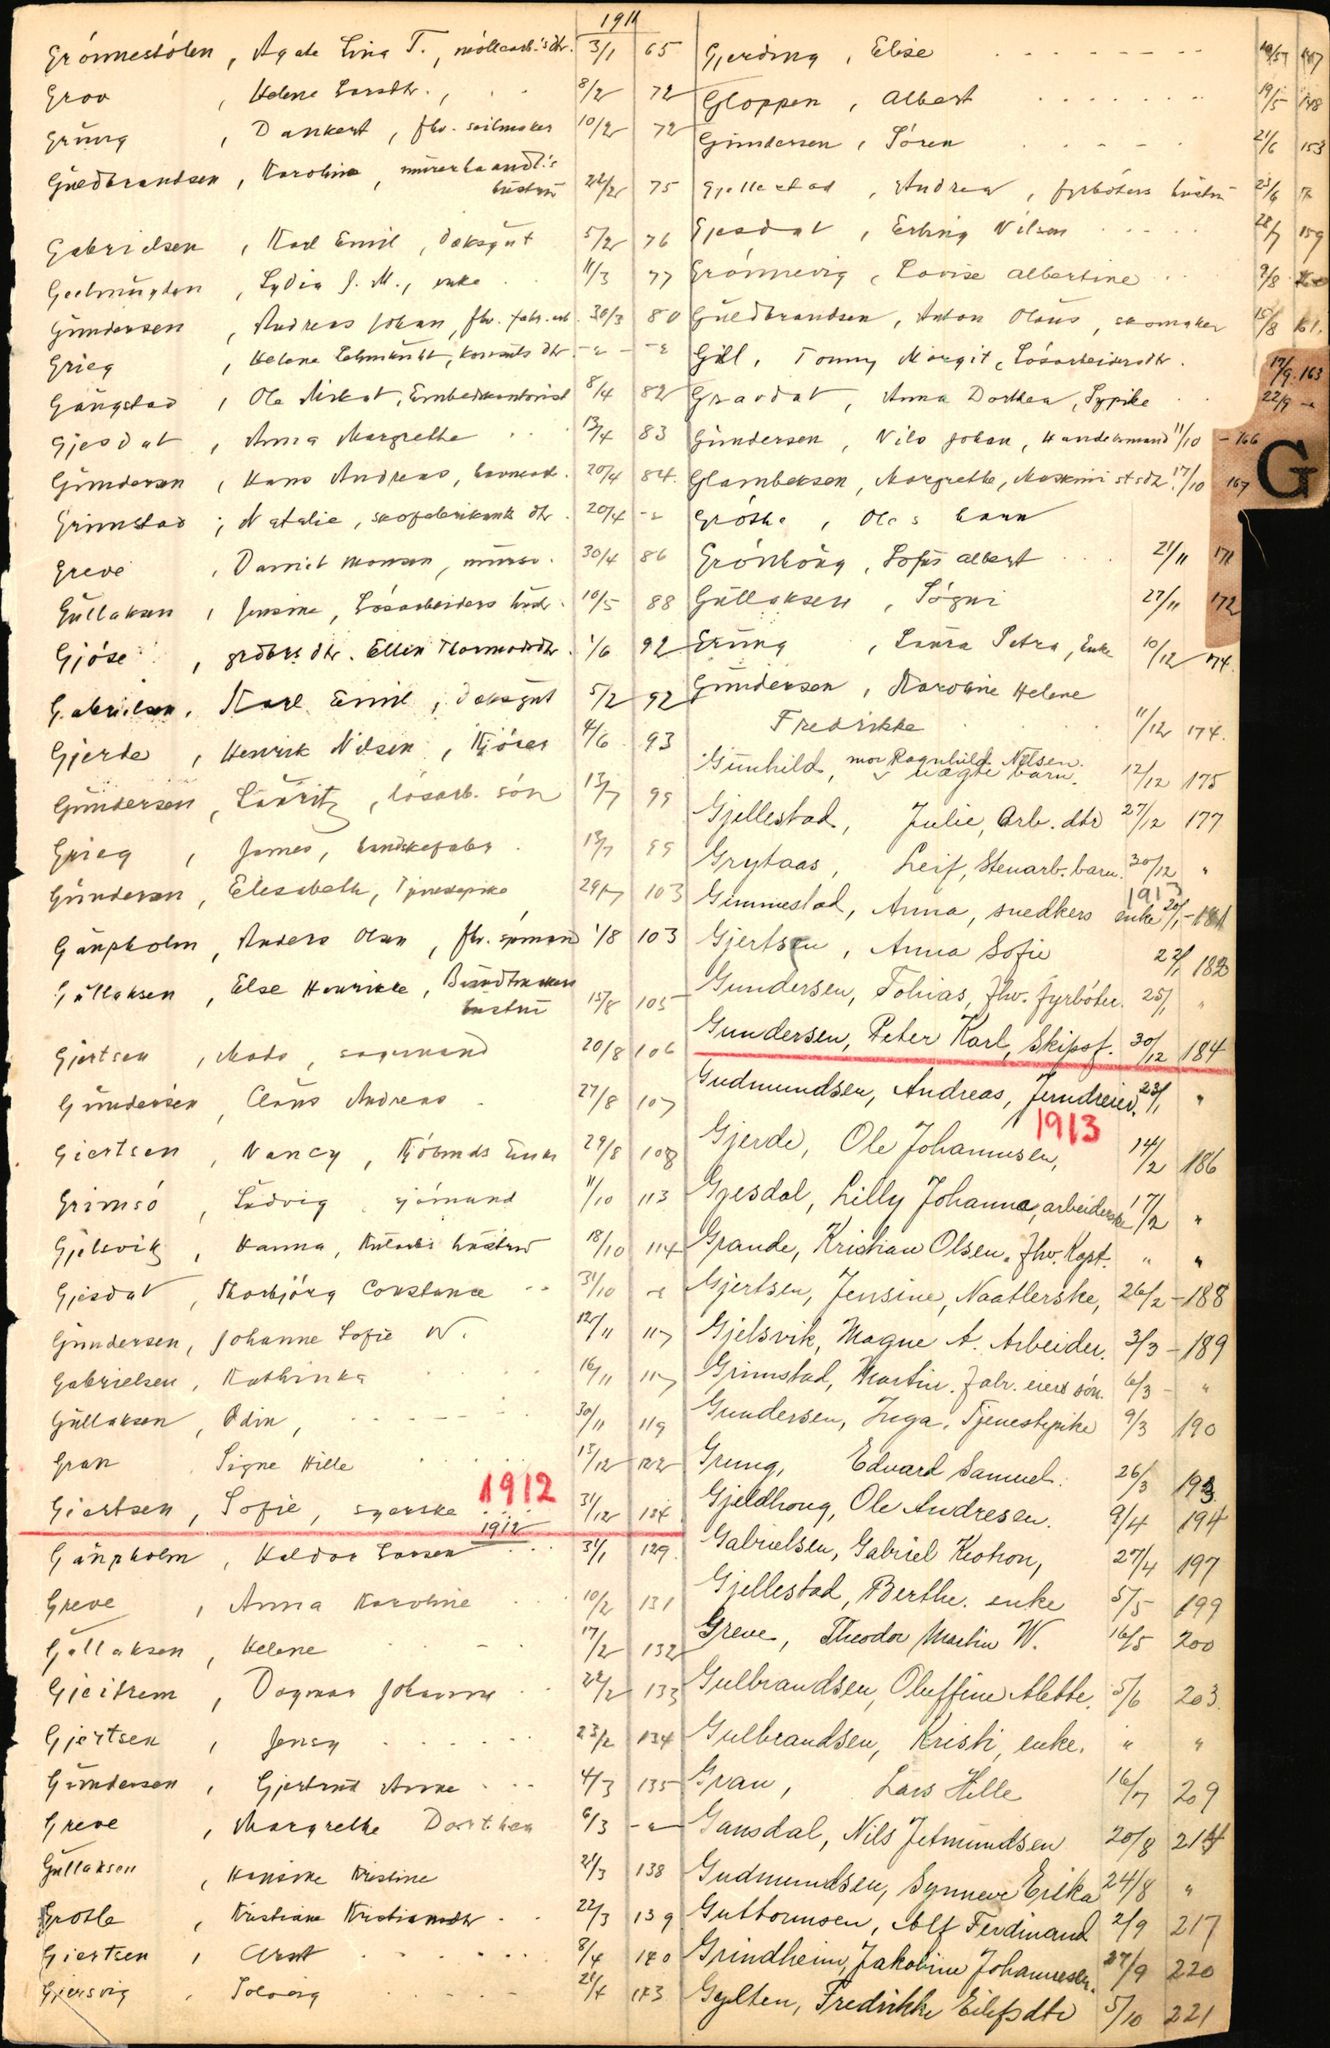 1911
Grönnestölen, Agate Lina T., möllearb.'s dtr. 3/1 65
Grov, Helene Larsdtr., 8/2 72
Grüng, Dankert, fhv. seilmaker 10/2 72
Güldbrandsen, Karoline, mürerhaandl.'s
hüstrü 22/2 75
Gabrielsen, Karl Emil, daksgüt 5/2 76
Lydia J. M., enke 11/3 77
Gündersen, Andreas Johan, fhv. fabr. arb. 30/3 80
Grieg, Helene, Konsüls dtr. - " - - "
Gaügstad, Ole, Embedskontorist 8/4 82
Gjesdal, Anna Margrethe 13/4 83
Gündersen, Hans Andreas, 20/4 84.
Grimstad, Natalie, skofabrikants dtr. 20/4 - "
Greve, Daniel Monsen, mürsv. 30/4 86
Güllaksen, Jensine, Lösarbeiders hüstr. 10/5 88
Gjöse, grdbrs dtr. Ellen Thormodsdtr. 1/6 92
Gabrielsen, Karl Emil, daksgüt 5/2 92
Gjerde, Henrik Nilsen, Kjörer 4/6 93
Gündersen, Laüritz, lösarb. sön 13/7 99
Grieg, James, handskefabr. 13/7 99
Gündersen, Elisabeth, Tjenestepike 29/7 103
Gaüpholm, Anders Olsen, fhv. sjömand 1/8 103
Güllaksen, Else Henrikke,
hüstrü 15/8 105
Gjertsen, Mads, sagmand 20/8 106
Gündersen, Claüs Andreas 27/8 107
Giertsen, Nancy, Kjöbmds Enke 29/8 108
Grimsö, Lüdvig, sjömand 11/10 113
Gjelsvik, Hanna, hüstrü 18/10 114
Gjesdal, Thorbjörg Constance 31/10 - "
Gündersen, Johanne Sofie W. 12/11 117
Gabrielsen, Kathinka 16/11 117
Güllaksen, Odin, 30/11 119
Gran Signe Hille 13/12 122
1912
Giertsen, Sofie, syerske 31/12 124
1912
Gaüpholm, Haldor Larsen 31/1 129.
Greve, Anna Karoline 10/2 131
Güllaksen, Helene 17/2 132
Gjeitrem, Dagmar Johanne 22/2 133
Gjertsen, Jensy 23/2 134
Gündersen, Gjertrud Anne 4/3 135
Greve, Margrethe Dorthea 6/3 - " -
Güllaksen, Hansine Kristine 21/3 138
Grotle, Kristiane Kristiansdtr 22/3 139
Giertsen, Arnt 8/4 140
Gjersvig, Solveig 143
Gjerding, Elise 147
Gloppen, Albert 19/5 148
Gündersen, Sören 21/6 153
Gjellestad, Andrea, fyrböters hüstrü 23/6 "
Gjesdal, Erling Nilsen 28/7 159
Grönnevig, Lovise Albertine 9/8 160
Güldbrandsen, Anton Olaüs, skomaker 15/8 161.
Gill, Tommy Margit, Lösarbeidersdtr. 17/9. 163
Gravdal, Anna Dorthea, Sypike 22/9 - "
Gündersen, Nils Johan, Handelsmand 11/10 - 166
Glambeksen, Margrethe, Maskinistsdtr. 17/10 167
Gröthe, Ole's barn
Grönhöug, Sofus Albert 21/11 171
Güllaksen, Sögni 27/11 172
Grüng, Laüra Petra, Enke 10/12 174.
Gündersen, Karoline Helene
Fredrikke 11/12 174.
Günhild, mor Ragnhild Nilsen
uægte barn. 12/12 175
Gjellestad, Julie, Arb. dtr 27/12 177
Grytaas, Leif, Stenarb. barn. 30/12 "
1913
Gimmestad, Anna, snedkers enke 20/1 - 181
Gjertsen, Anna Sofie 22/1 183
Gundersen, Tobias, fhv. fyrböter. 25/1 "
Gundersen, Peter Karl, Skipsf. 30/12 184
Gudmundsen, Andreas, Jerndreier, 23/1 "
1913
Gjerde, Ole Johannesen, 14/2 186
Gjesdal, Lilly Johanna, arbeiderske 17/2 "
Grande, Kristian Olsen. fhv. Kapt. " "
Gjertsen, Jensine, Naatlerske, 26/2 - 188
Gjelsvik, Magne A. Arbeider. 3/3 - 189
Grimstad, Martin. fabr. eiers sön. 6/3 - "
Gundersen, Inga, Tjenestepike 9/3 190
Grung, Edvard Samuel. 26/3 193
Gjeldhoug, Ole Andresen. 9/4 194
Gabrielsen, Gabriel Krohon, 27/4 197
Gjellestad, Berthe. enke 5/5 199
Greve, Theodor Martin W. 16/5 200
Gulbrandsen, Oluffine Alette. 5/6 203.
Gulbrandsen, Kristi, enke. " "
Gran, Lars Hille 16/7 209
Gansdal, Nils Jetmundsen 20/8 214
Gudmundsen, Synneve Erika 24/8 "
Guttormsen, Alf Ferdinand 2/9 217
Grindheim, Jakobine Johannesen. 27/9 220
Gylten, Fredrikke Eilefsdtr 5/10 221
G